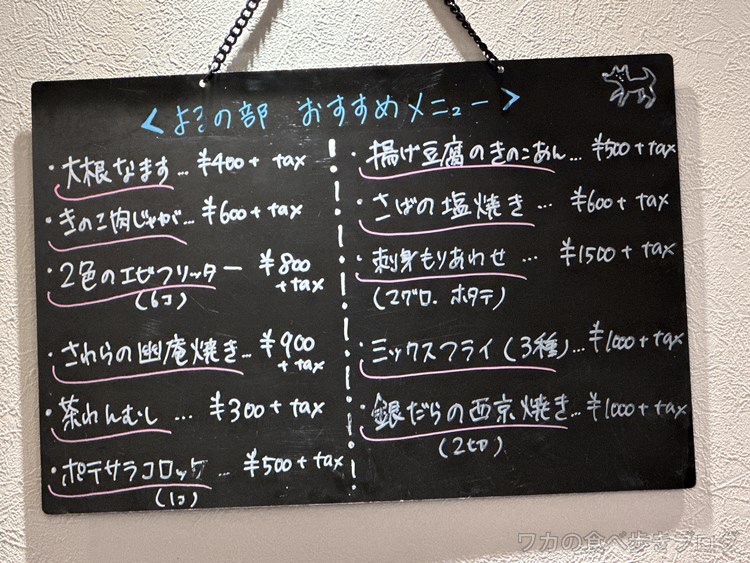 ＜よるの部 おすすめメニュー＞
・大根なます… ¥400+tax
・きのこ肉じゃが… ¥600+tax
・2色のエビフリッター ¥800+tax
(6コ)
・さわらの幽庵焼き… ¥900+tax
・茶わんむし… ¥300+tax
・ポテサラコロッケ… ¥500+tax
(1コ)
・揚げ豆腐のきのこあん… ¥500+tax
・さばの塩焼き… ¥600+tax
・刺身もりあわせ… ¥1500+tax
(マグロ.ホタテ)
・ミックスフライ(3種)… ¥1000+tax
・銀だらの西京焼き… ¥1000+tax
(2切)
ワカの食べ歩きブログ